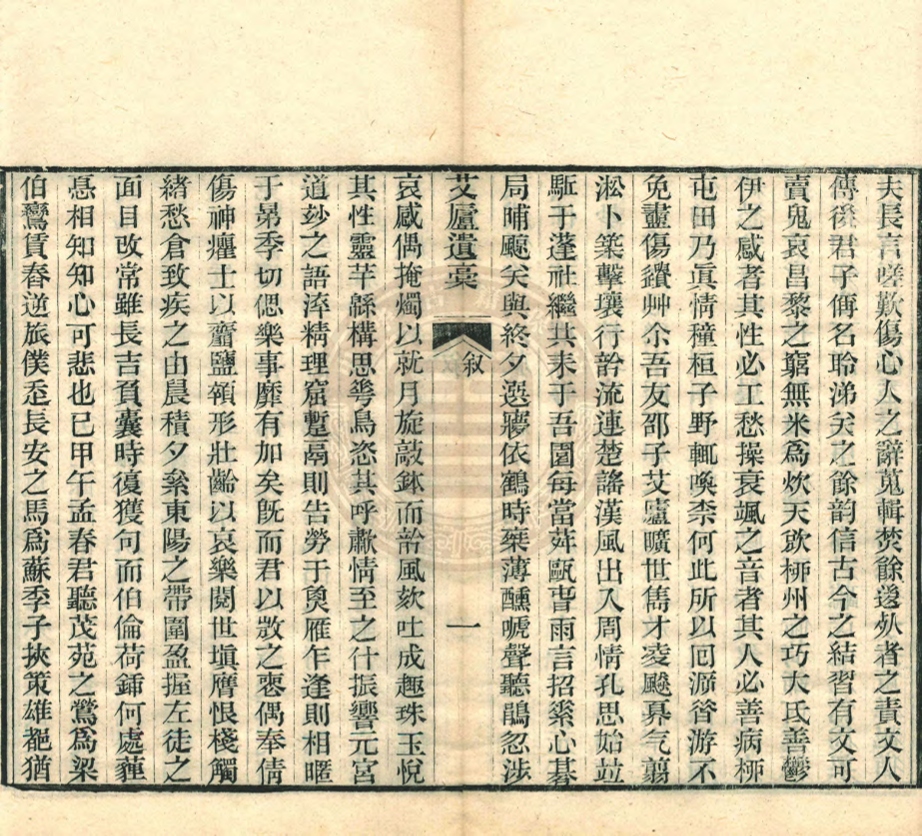 夫長言嗟歎傷心人之辭蒐輯焚餘後死者之責文人
傳後君子傷名聆涕矣之餘韵信古今之結習有文可
賣鬼哀昌黎之窮無米爲炊天欨栁州之巧大氐善鬱
伊之感者其性必工愁操哀颯之音者其人必善病栁
屯田乃眞情種桓子野輒喚柰何此所以囘溯昝游不
免盡傷鑽艸尒吾友邵子艾廬曠世雋才夌飈冪气翦
淞卜築擊壤行歌流連楚謠漢風出入周情孔思始竝
駈于蓬社繼共耒于吾園每當茻甌話雨言招素心棊
局晡颸矣與終夕選夢依鶴時桀薄醺唬聲聽鵑忽涉
艾廬遺稾
叙
一
哀感偶掩燭以就月旋敲鉢而歌風欬吐成趣珠玉悅
其性靈芊緜構思彎鳥恣其呼歗情至之什振響元宮
道玅之語滓精理窟蹔鬲則告勞于奠雁乍逢則相暱
于曓季切偲樂事靡有加矣旣而君以敫之悤偶奉倩
傷神癯士以虀鹽頓形壯齡以哀樂閱世塡膺恨棧觸
緒愁倉致疾之由晨積夕絫東陽之帶圍盈握左徒之
面目改常雖長吉負囊時復獲句而伯倫荷鍤何處薶
惥相知知心可悲也已甲午孟春君聽茂苑之鶯爲梁
伯鸞賃舂逆旅僕忢長安之馬爲蘇季子挾策雄邦猶